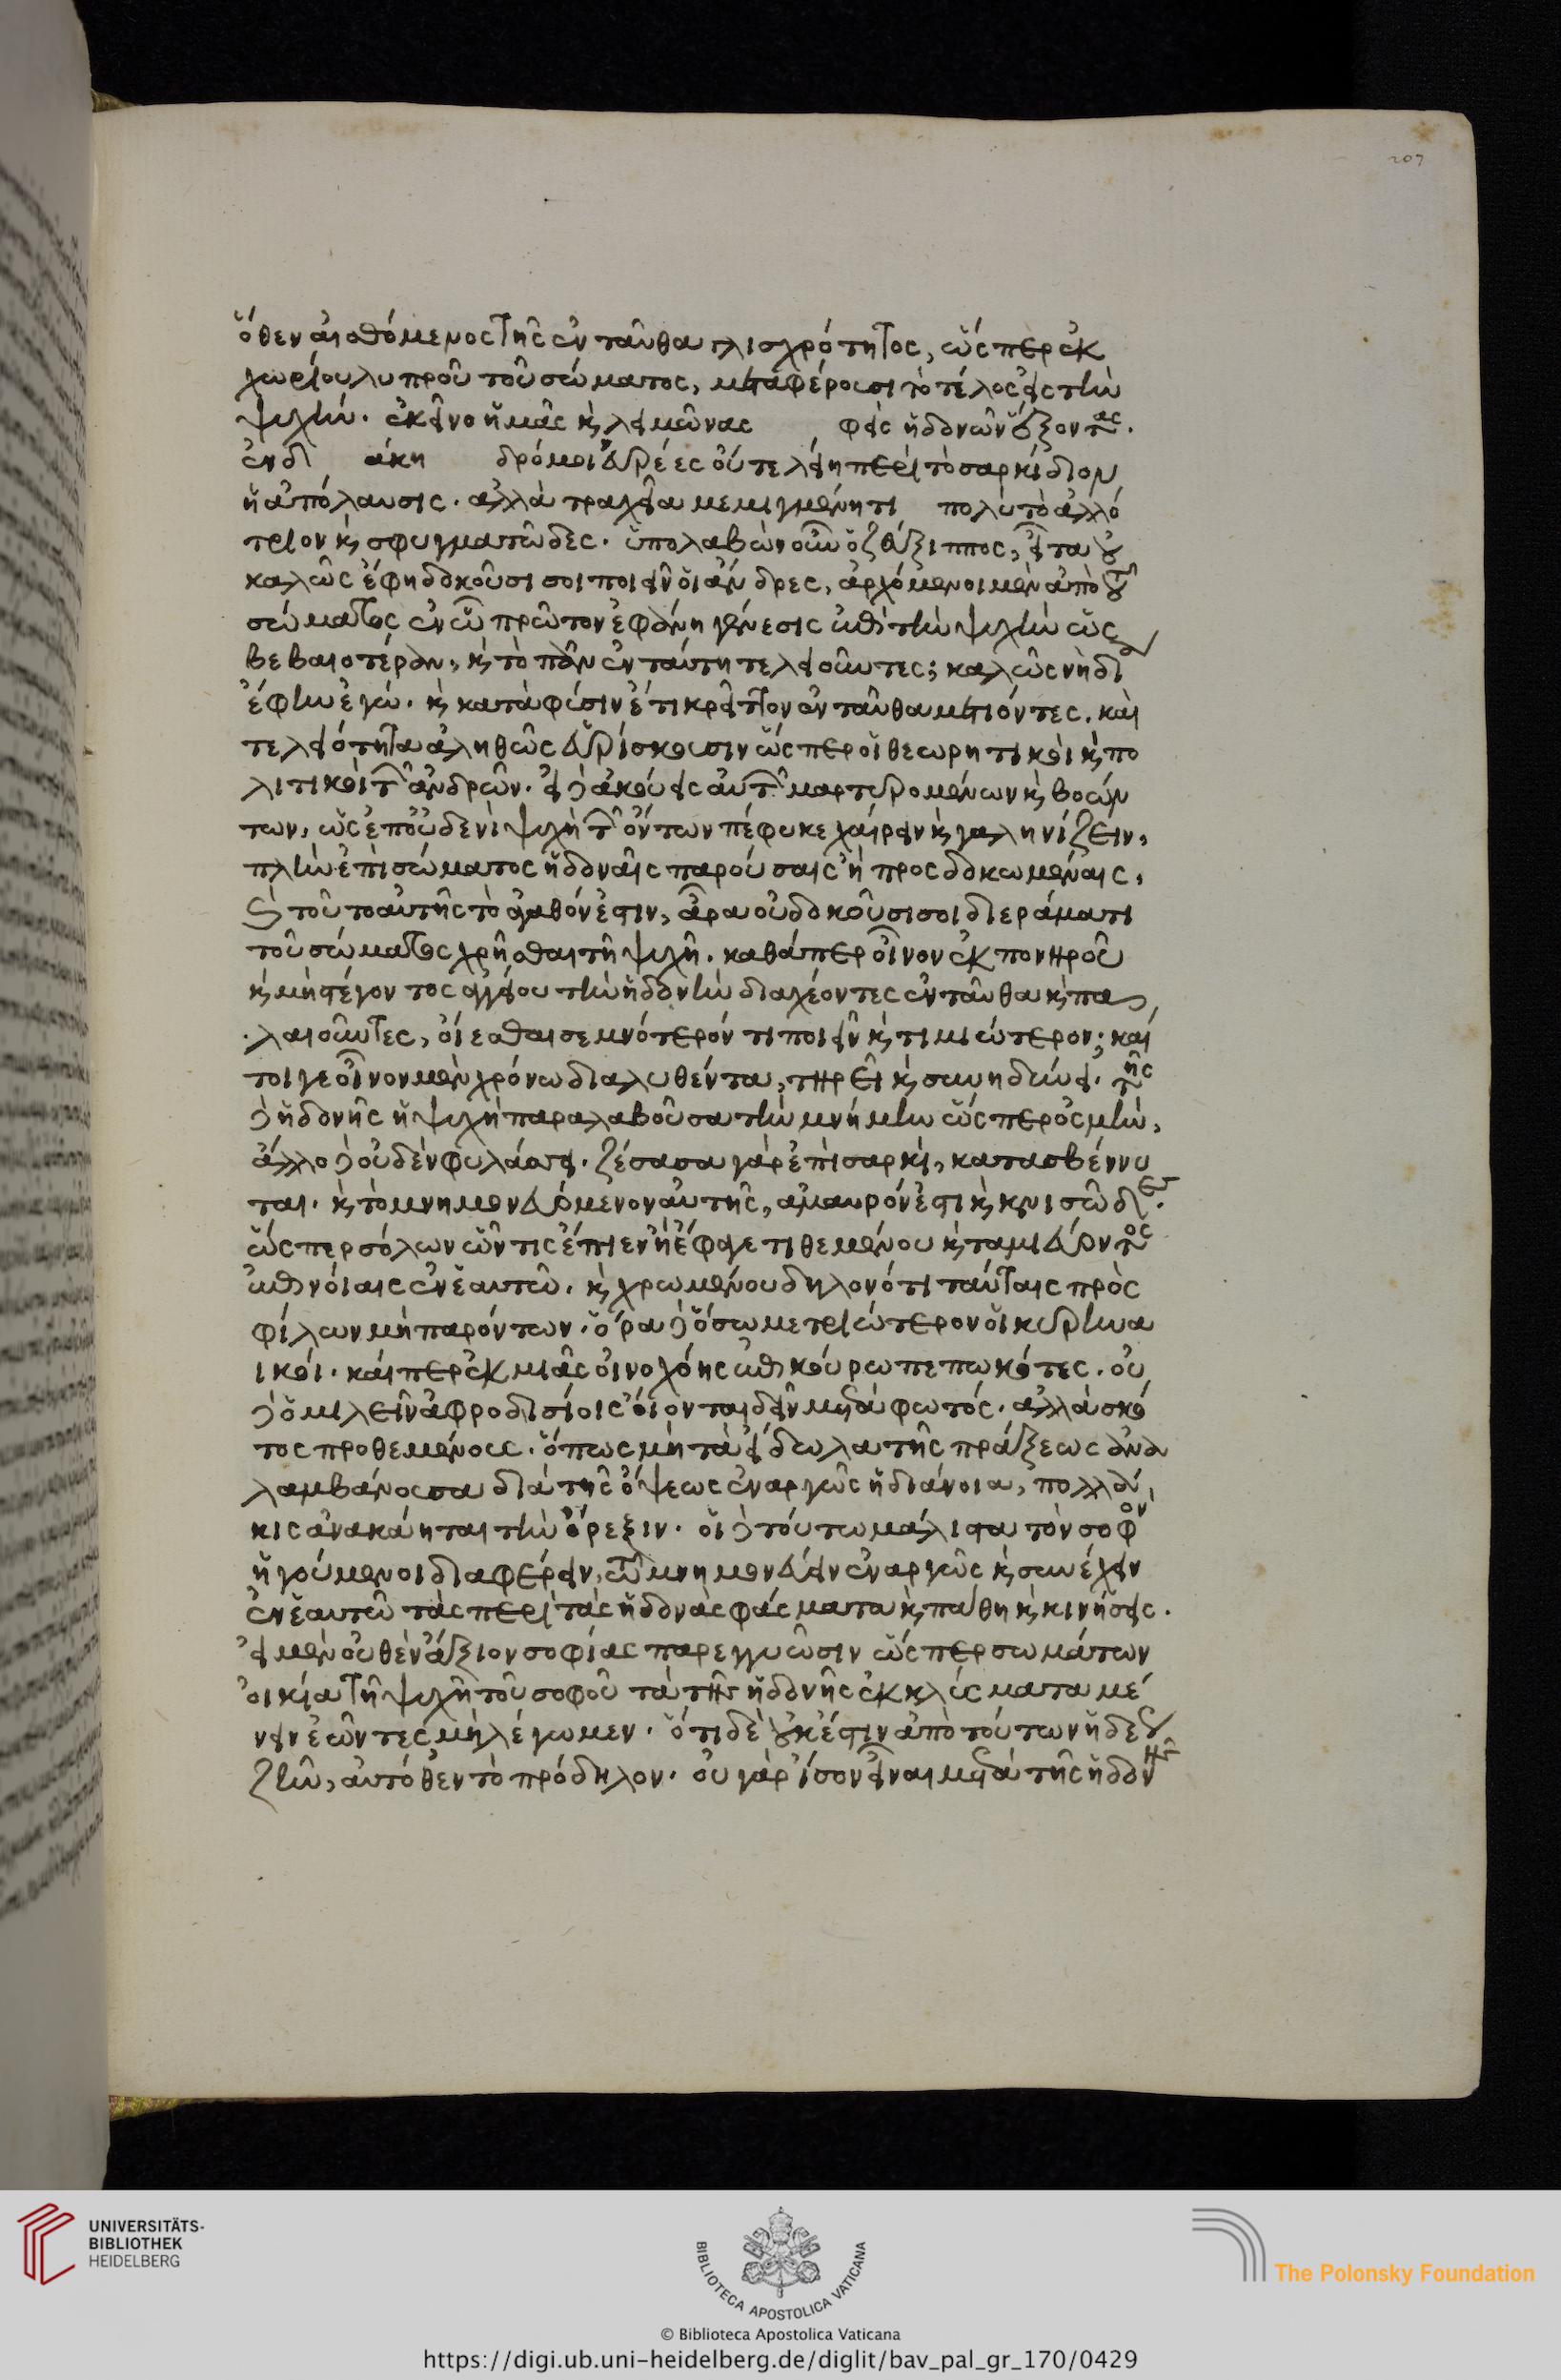 207
ὅθεν αἰσθόμενος τῆς ἐνταῦθα γλισχρότητος, ὥσπερ ἐκ
χωρίου λυπροῦ τοῦ σώματος, μεταφέρουσι τὸ τέλος εἰς τὴν
ψυχήν. ἐκεῖνο ἡμᾶς κ̀ λειμῶνας φεις ἡδονῶν ἕξοντας.
ἐνδι άκη δρόμοι εὐρέες οὔτε λείη περὶ τὸ σαρκίδιον
ἡ ἀπόλαυσις. ἀλλὰ τραχεῖα μεμιγμένη τι πολὺ τὸ ἀλλό
τριον κ̀ σφυγματῶδες. ὑπολαβὼν οὖν ὁ ζεύξιππος, εἶτα οὐ
καλῶς ἔφη δοκοῦσι σοι ποιεῖν οἱ ἄνδρες, ἀρχόμενοι μὲν ἀπὸ τοῦ
σώματος ἐν ᾧ πρῶτον ἐφάνη γένεσις ἐπὶ τὴν ψυχὴν ὡς
βεβαιοτέραν, κ̀ τὸ πᾶν ἐν ταύτῃ τελειοῦντες; καλῶς νὴ δία
ἔφην ἐγώ. κ̀ κατὰ φύσιν ἔτι κρεῖττον ἐνταῦθα μετιόντες. καὶ
τελειότητα ἀληθῶς εὑρίσκουσιν ὥσπερ οἱ θεωρητικοὶ κ̀ πο
λιτικοὶ τῶν ἀνδρῶν. εἰ δὲ ἀκούεις αὐτῶν μαρτυρομένων κ̀ βοών
των, ὡς ἐπ' οὐδενὶ ψυχὴ τῶν ὄντων πέφυκε χαίρειν κ̀ γαληνίζειν,
πλὴν ἐπὶ σώματος ἡδοναῖς παρούσαις ἢ προσδοκωμέναις,
κ̀ τοῦτο αὐτῆς τὸ ἀγαθόν ἐστιν, ἆρα οὐ δοκοῦσι σοι διεράματι
τοῦ σώματος χρῆσθαι τῇ ψυχῇ. καθάπερ οἶνον ἐκ πονηροῦ
κ̀ μὴ στέγοντος ἀγγείου τὴν ἡδονὴν διαχέοντες ἐνταῦθα κ̀ πα
λαιοῦντες, οἴεσθαι σεμνότερόν τι ποιεῖν κ̀ τιμιώτερον; καί
τοι γε οἶνον μὲν χρόνῳ διαλυθέντα, τηρεῖ κ̀ συνηδύνει. τῆς
δὲ ἡδονῆς ἡ ψυχὴ παραλαβοῦσα τὴν μνήμην ὥσπερ ὀσμὴν,
ἄλλο δὲ οὐδὲν φυλάσσει. ζέσασα γὰρ ἐπὶ σαρκὶ, κατασβέννυ
ται. κ̀ τὸ μνημονευόμενον αὐτῆς, ἀμαυρόν ἐστι κ̀ κνισῶδες.
ὥσπερ σόλων ὧν τις ἔπιεν ἢ ἔφαγε τιθεμένου κ̀ ταμιεύοντος
ἐπινοίαις ἐν ἑαυτῷ. κ̀ χρωμένου δηλονότι ταύταις πρὸς
φίλων μὴ παρόντων. ὅρα δὲ ὅσῳ μετριώτερον οἱ κυρηνα
ικοὶ. καίπερ ἐκ μιᾶς οἰνοχόης ἐπικούρῳ πεπωκότες. οὐ
δὲ ὁμιλεῖν ἀφροδισίοις οἴονται δεῖν μετὰ φωτός. ἀλλὰ σκό
τος προθεμένους. ὅπως μὴ τὰ εἴδωλα τῆς πράξεως ἀνα
λαμβάνουσα διὰ τῆς ὄψεως ἐναργῶς ἡ διάνοια, πολλά
κις ἀνακάηται τὴν ὄρεξιν. οἱ δὲ τούτῳ μάλιστα τὸν σοφὸν
ἡγούμενοι διαφέρειν, τῷ μνημονεύειν ἐναργῶς κ̀ συνέχειν
ἐν ἑαυτῷ τὰς περὶ τὰς ἡδονὰς φάσματα κ̀ πάθη κ̀ κινήσεις.
εἰ μὲν οὐθὲν ἄξιον σοφίας παρεγγυῶσιν ὥσπερ σωμάτων
οἰκίᾳ τῇ ψυχῇ τοῦ σοφοῦ τὰ τῆς ἡδονῆς ἐκκλύσματα μέ
νειν ἐῶντες μὴ λέγωμεν. ὅτι δὲ οὐκ ἔστιν ἀπὸ τούτων ἡδέως
ζῆν, αὐτόθεν τὸ πρόδηλον. οὐ γὰρ ἴσον εἶναι μετὰ τῆς ἡδονῆς
UNIVERSITÄTS-
BIBLIOTHEK
HEIDELBERG
BIBLIOTECA APOSTOLICA VATICANA
The Polonsky Foundation
© Biblioteca Apostolica Vaticana
https://digi.ub.uni-heidelberg.de/diglit/bav_pal_gr_170/0429